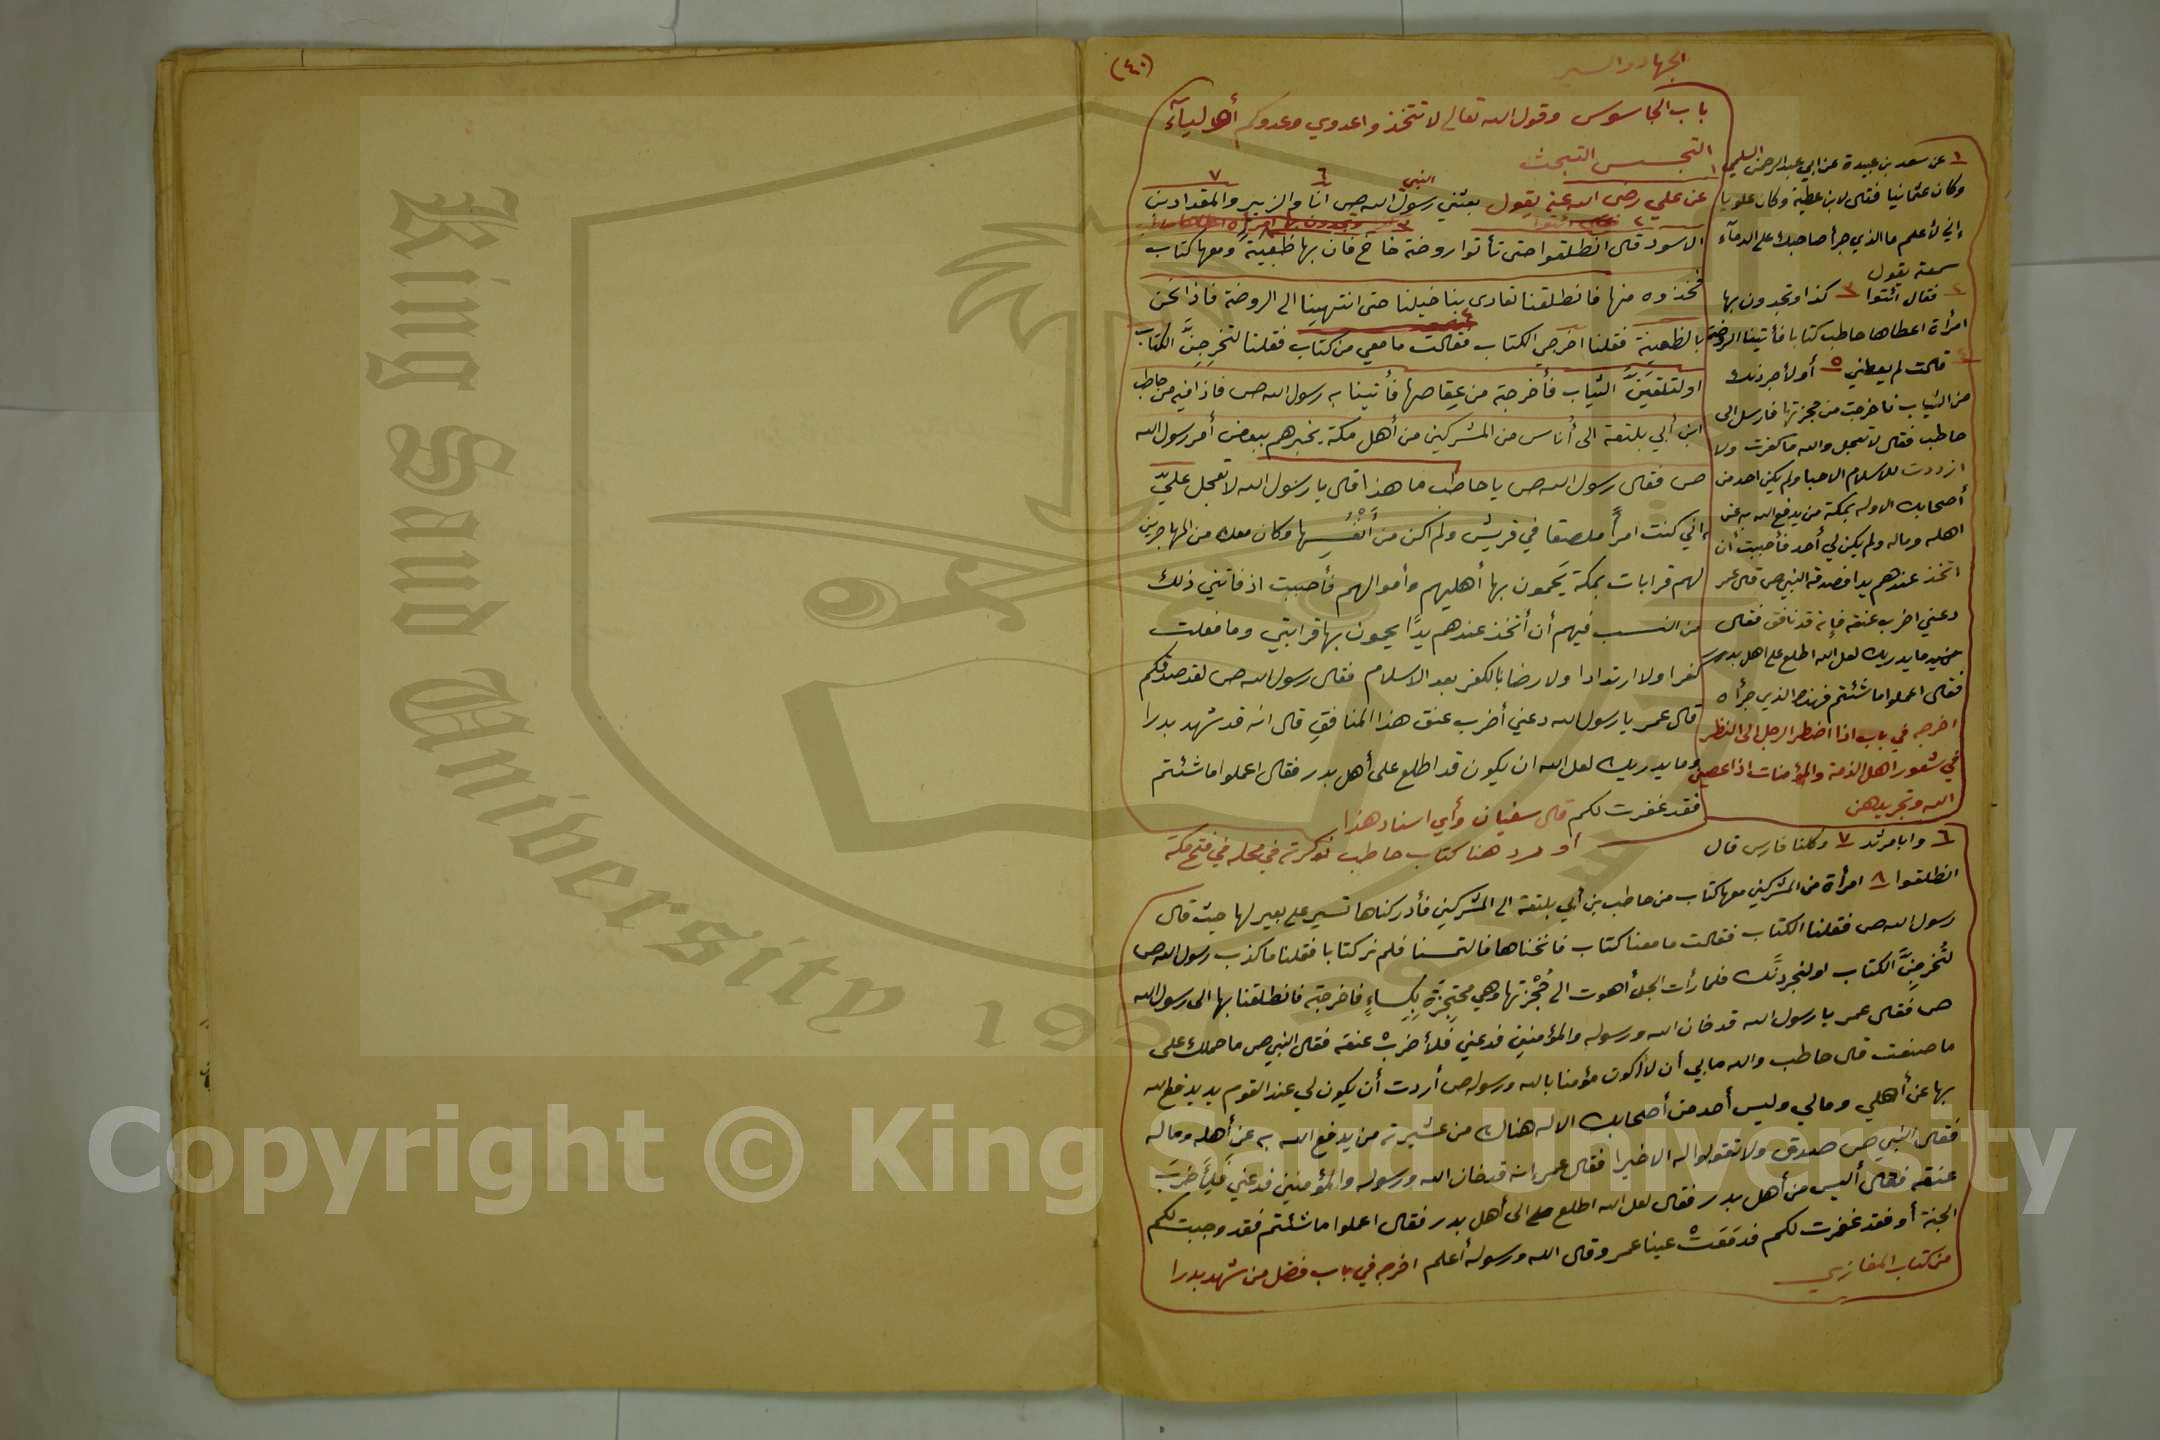 الجهاد والسير
(٤٠)
باب الجاسوس وقول الله تعالى لا تتخذوا عدوي وعدوكم أولياء
التجسس التبحث
عن علي رضي الله عنه يقول بعثني رسول الله ص انا والزبير والمقداد بن
النبي
الاسود قال انطلقوا حتى تأتوا روضة خاخ فان بها ظعينة ومعها كتاب
فخذوه منها فانطلقنا تعادى بنا خيلنا حتى انتهينا الى الروضة فاذا نحن
بالظعينة فقلنا اخرجي الكتاب فقالت ما معي من كتاب فقلنا لتخرجن الكتاب
او لتلقين الثياب فأخرجته من عقاصها فأتينا به رسول الله ص فاذا فيه من حاطب
ابن أبي بلتعة الى أناس من المشركين من أهل مكة يخبرهم ببعض أمر رسول الله
ص فقال رسول الله ص يا حاطب ما هذا قال يا رسول الله لا تعجل علي
اني كنت امرأ ملصقا في قريش ولم اكن من أنفسها وكان معك من المهاجرين
لهم قرابات بمكة يحمون بها أهليهم وأموالهم فأحببت اذ فاتني ذلك
من النسب فيهم أن أتخذ عندهم يدا يحمون بها قرابتي وما فعلت
كفرا ولا ارتدادا ولا رضا بالكفر بعد الاسلام فقال رسول الله ص لقد صدقكم
قال عمر يا رسول الله دعني أضرب عنق هذا المنافق قال انه قد شهد بدرا
وما يدريك لعل الله ان يكون قد اطلع على أهل بدر فقال اعملوا ما شئتم
فقد غفرت لكم قال سفيان وأي اسناد هذا
أورد هنا كتاب حاطب ذكرته في محله في فتح مكة
١ عن سعد بن عبيدة عن ابي عبد الرحمن السلمي
وكان عثمانيا فقال لابن عطية وكان علويا
إني لأعلم ما الذي جرأ صاحبك على الدمآء
سمعته يقول
٢ فقال ائتوا ٣ كذا وتجدون بها
امرأة اعطاها حاطب كتابا فأتينا الروضة
٤ قالت لم يعطني ٥ أو لأجردنك
من الثياب فاخرجت من حجزتها فارسل الى
حاطب فقال لا تعجل والله ما كفرت ولا
ازددت للاسلام الا حبا ولم يكن احد من
أصحابك الا وله بمكة من يدفع الله به عن
اهله وماله ولم يكن لي أحد فأحببت أن
اتخذ عندهم يدا فصدقه النبي ص قال عمر
دعني اضرب عنقه فإنه قد نافق فقال
ما يدريك لعل الله اطلع على اهل بدر
فقال اعملوا ما شئتم فهذا الذي جرأه
اخرجه في باب اذا اضطر الرجل الى النظر
في شعور اهل الذمة والمؤمنات اذا عصين
الله وتجريدهن
٦ وابا مرثد ٧ وكلنا فارس قال
انطلقوا ٨ امرأة من المشركين معها كتاب من حاطب بن أبي بلتعة الى المشركين فأدركناها تسير على بعير لها حيث قال
رسول الله ص فقلنا الكتاب فقالت ما معنا كتاب فأنخناها فالتمسنا فلم نر كتابا فقلنا ما كذب رسول الله ص
لتخرجن الكتاب او لنجردنك فلما رأت الجد أهوت الى حجزتها وهي محتجزة بكساء فاخرجته فانطلقنا بها الى رسول الله
ص فقال عمر يا رسول الله قد خان الله ورسوله والمؤمنين فدعني فلأضرب عنقه فقال النبي ص ما حملك على
ما صنعت قال حاطب والله ما بي أن لا أكون مؤمنا بالله ورسوله ص أردت أن يكون لي عند القوم يد يدفع الله
بها عن أهلي ومالي وليس أحد من أصحابك الا له هناك من عشيرته من يدفع الله به عن أهله وماله
فقال النبي ص صدق ولا تقولوا له الا خيرا فقال عمر انه قد خان الله ورسوله والمؤمنين فدعني فلأضرب
عنقه فقال أليس من أهل بدر فقال لعل الله اطلع الى أهل بدر فقال اعملوا ما شئتم فقد وجبت لكم
الجنة أو فقد غفرت لكم فدمعت عينا عمر وقال الله ورسوله أعلم اخرجه في باب فضل من شهد بدرا
من كتاب المغازي
King Saud University 1957
Copyright © King Saud University